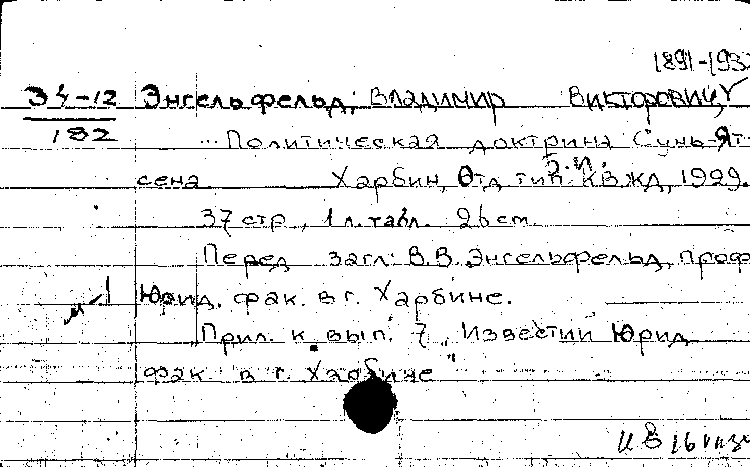 1891-193
Э4-12 Энгельфельд, Владимир Викторович
182
Политическая доктрина Сунь-Ят-
сена Харбин, б.и. Отд. тип. КВжд, 1929.
37 стр., 1 л. табл. 26 см.
Перед загл: В.В. Энгельфельд, проф
Юрид. фак. в г. Харбине.
Прил. к вып. 7 "Известии Юрид
фак в г. Харбине"